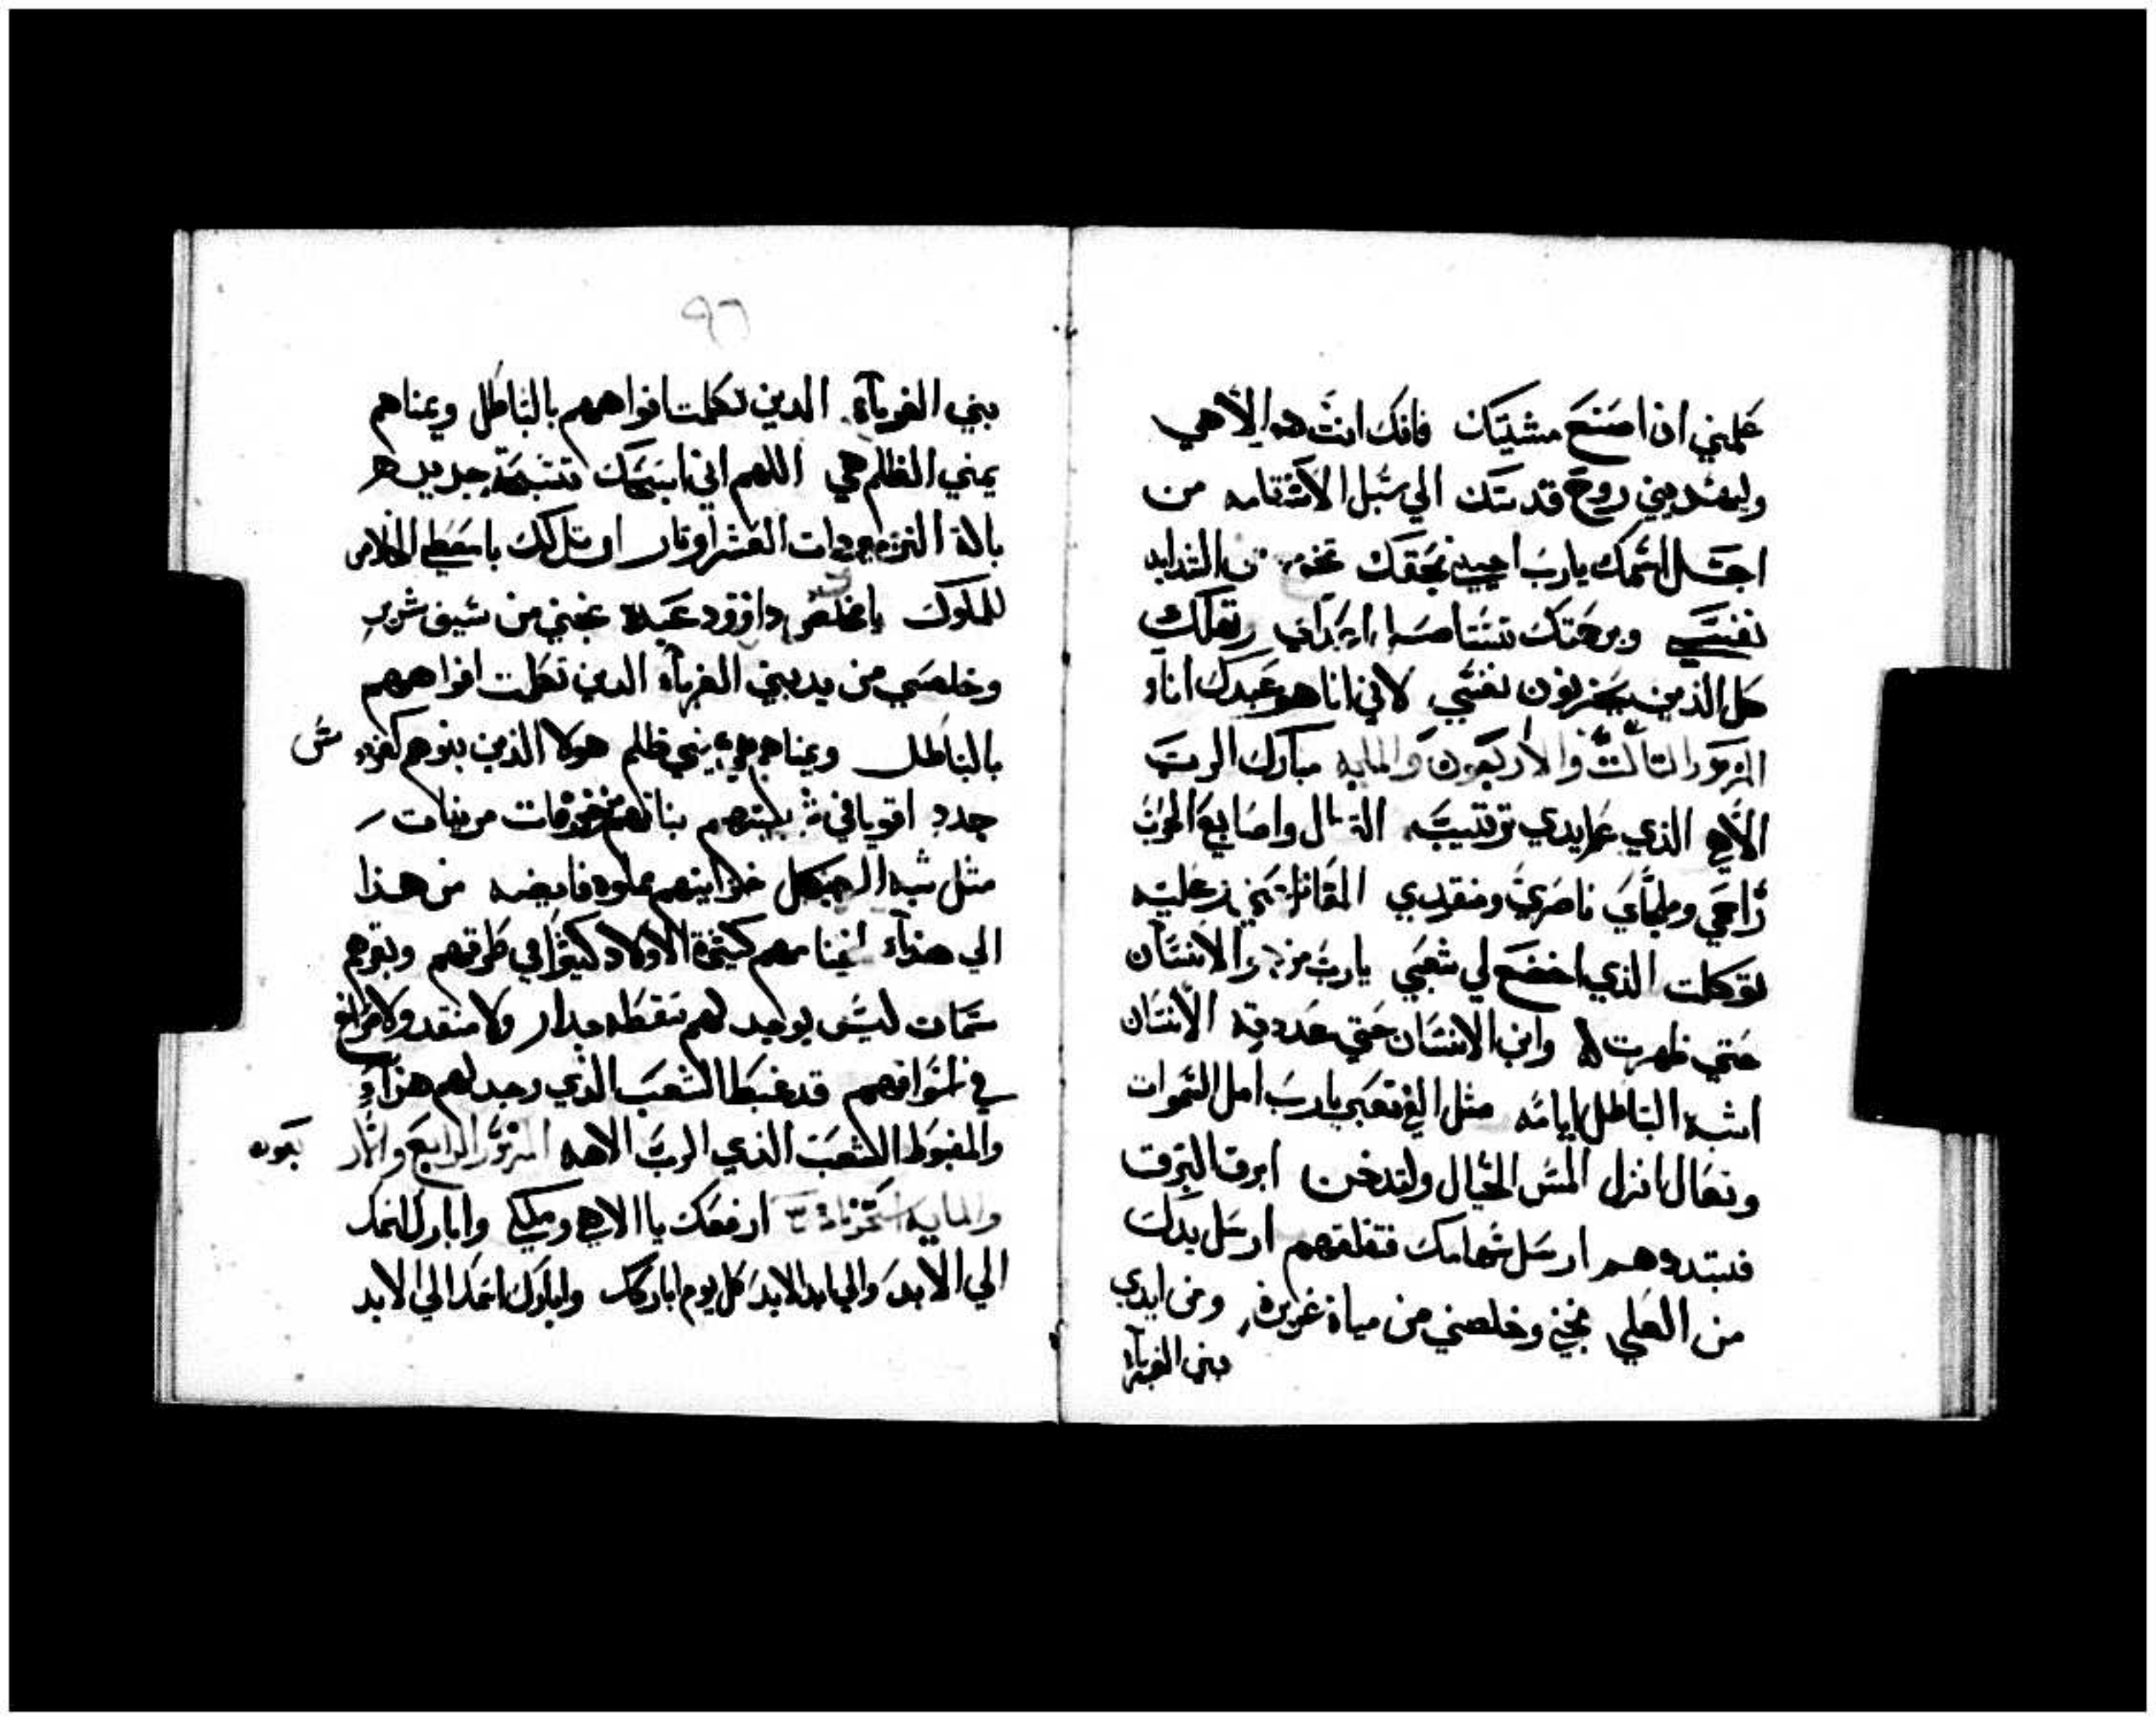 علمني ان اصنع مشيتك فانك انت هو الاهي
وليهديني روح قدسك الي سبل الاستقامه من
اجل اسمك يارب احييني بحقك تخرج من الشدايد
نفسي وبرحمتك تستاصل اعداي وتهلك
كل الذين يحزنون نفسي لاني انا هو عبدك انا
المزمور التالت والاربعون والمايه مبارك الرب
الاهي الذي علم ايدي ترتيب القتال واصابعي الحرب
راحمي وملجاي ناصري ومنقدي المقاتل عني عليه
توكلت الذي اخضع لي شعبي يارب من هو الانسان
حتي ظهرت له وابن الانسان حتي عددته الانسان
اشبه الباطل ايامه مثل الفي تعبر يارب امل السموات
وتعال انزل المس الجبال ولتدخن ابرق البرق
فتبددهم ارسل سهامك فتقلقهم ارسل يدك
من العلي نجني وخلصني من مياة غزيرة ومن ايدي
بني الغربآ
٩٦
بني الغربآء الدين تكلمت افواههم بالباطل ويمناهم
يمني الظلم هي اللهم اني اسبحك تسبحة جديده
بالة المزمور دات العشر اوتار ارتل لك يا معطي الخلاص
للملوك يا مخلص داوود عبده نجني من سيف شرير
وخلصني من يد بني الغربآء الدين تكلمت افواههم
بالباطل ويمناهم هي يمني ظلم هولا الذين بنوهم كغروس
جدد اقويا في شبيبتهم بناتهم مزخرفات مزينات
مثل شبه الهيكل خزاينهم مملوه فايضه من هذا
الي هذاء اغنامهم كثيرة الاولاد كثيرا في طرقهم وبقرهم
سمان ليس يوجد لهم سقطه جدار ولا منقد ولا صراخ
في اسواقهم قد غبطا الشعب الذي وجد لهم هذاء
والمغبوط الشعب الذي الرب الاهه المزمور الرابع والاربعون
والمايه ارفعك يا الاهي وملكي وابارك اسمك
الي الابد والي ابد الابد كل يوم اباركك وابارك اسمك الي الابد